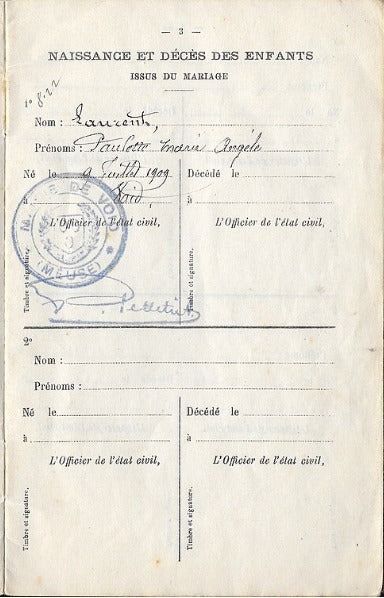 — 3 —
NAISSANCE ET DÉCÈS DES ENFANTS
ISSUS DU MARIAGE
1º 8.22
Nom : Laurent,
Prénoms : Paulette Marie Angèle
Né le 9 Juillet 1909 Décédé le
à Void, à
L'Officier de l'état civil, L'Officier de l'état civil,
MAIRIE DE VOID
(MEUSE)
Timbre et signature. Timbre et signature.
2º
Nom :
Prénoms :
Né le Décédé le
à à
L'Officier de l'état civil, L'Officier de l'état civil,
Timbre et signature. Timbre et signature.